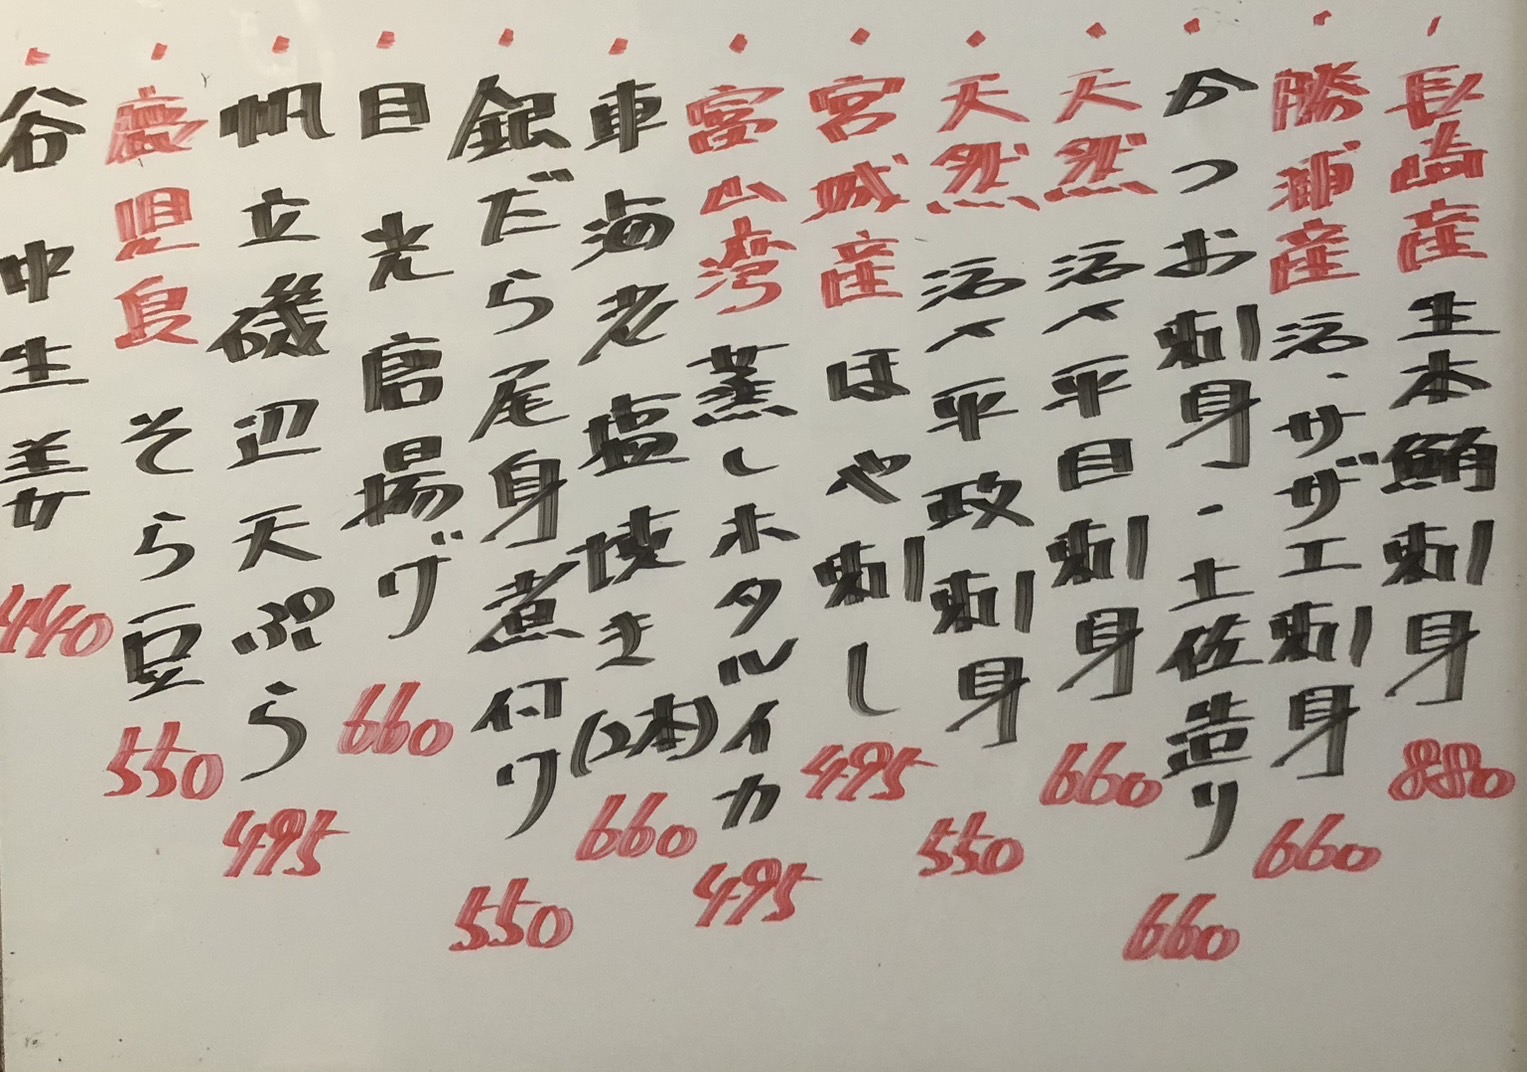 長崎産 生本鮪刺身 880
勝浦産 活・サザエ刺身 660
かつお刺身・土佐造り 660
天然 活〆平目刺身 660
天然 活〆平政刺身 550
宮城産 ほや刺し 495
富山湾 蒸しホタルイカ 495
車海老塩焼き(2本) 660
銀だら尾身煮付け 550
目光唐揚げ 660
帆立磯辺天ぷら 495
鹿児島 そら豆 550
谷中生姜 440